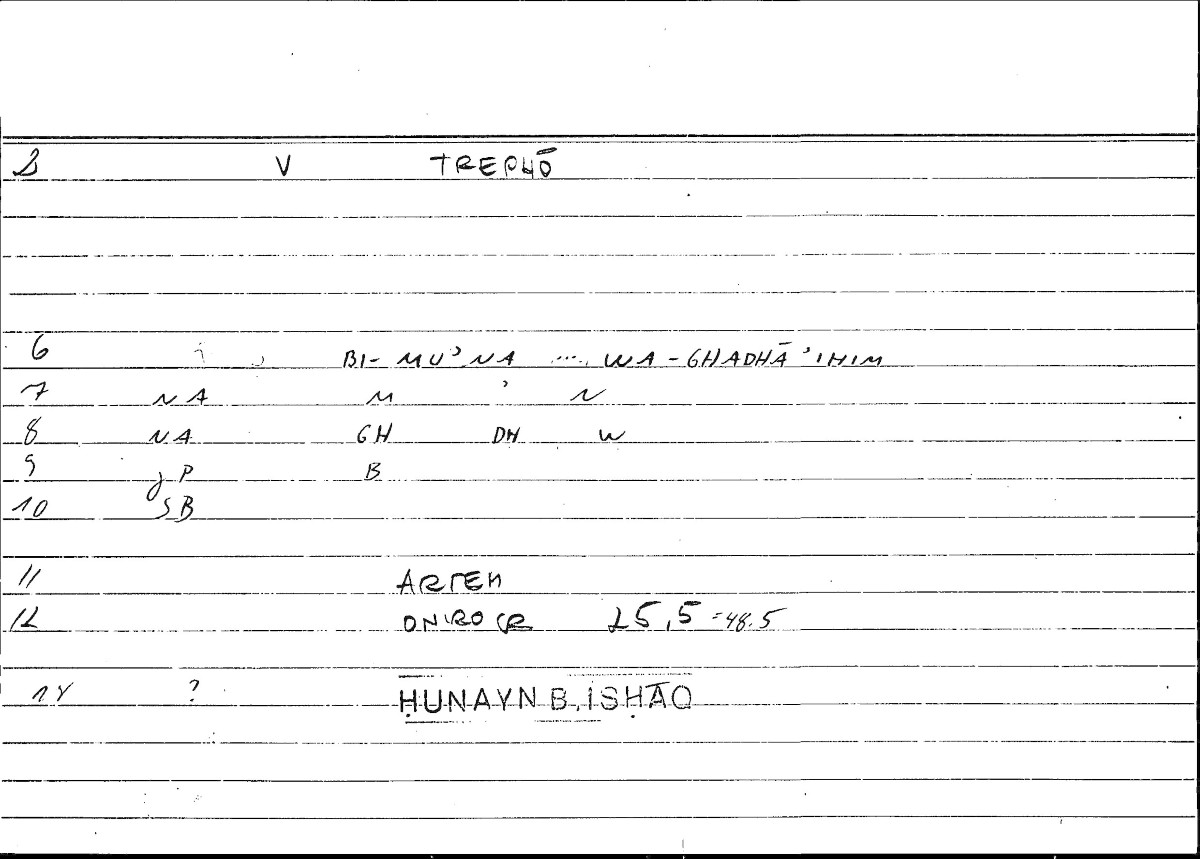 2 V TREPHŌ
6 BI-MU'NA .... WA-GHADHĀ'IHIM
7 NA M ' N
8 NA GH DH W
9 gP B
10 SB
11 ARTEM
12 ONIROCR 25,5 = 48.5
14 ? ḤUNAYN B. ISḤĀQ